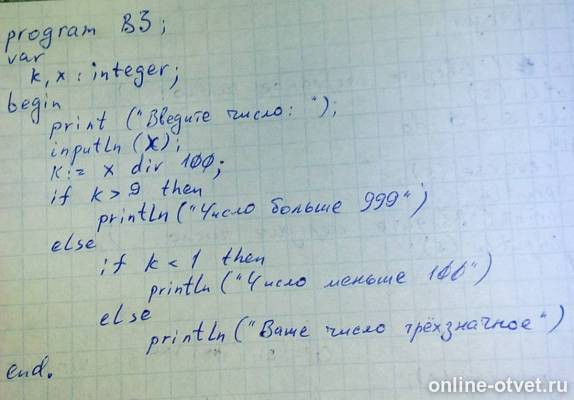 program B3;
var
k, x : integer;
begin
print ("Введите число: ");
inputln (x);
k := x div 100;
if k > 9 then
println ("Число больше 999")
else
if k < 1 then
println ("Число меньше 100")
else
println ("Ваше число трёхзначное")
end.
online-otvet.ru